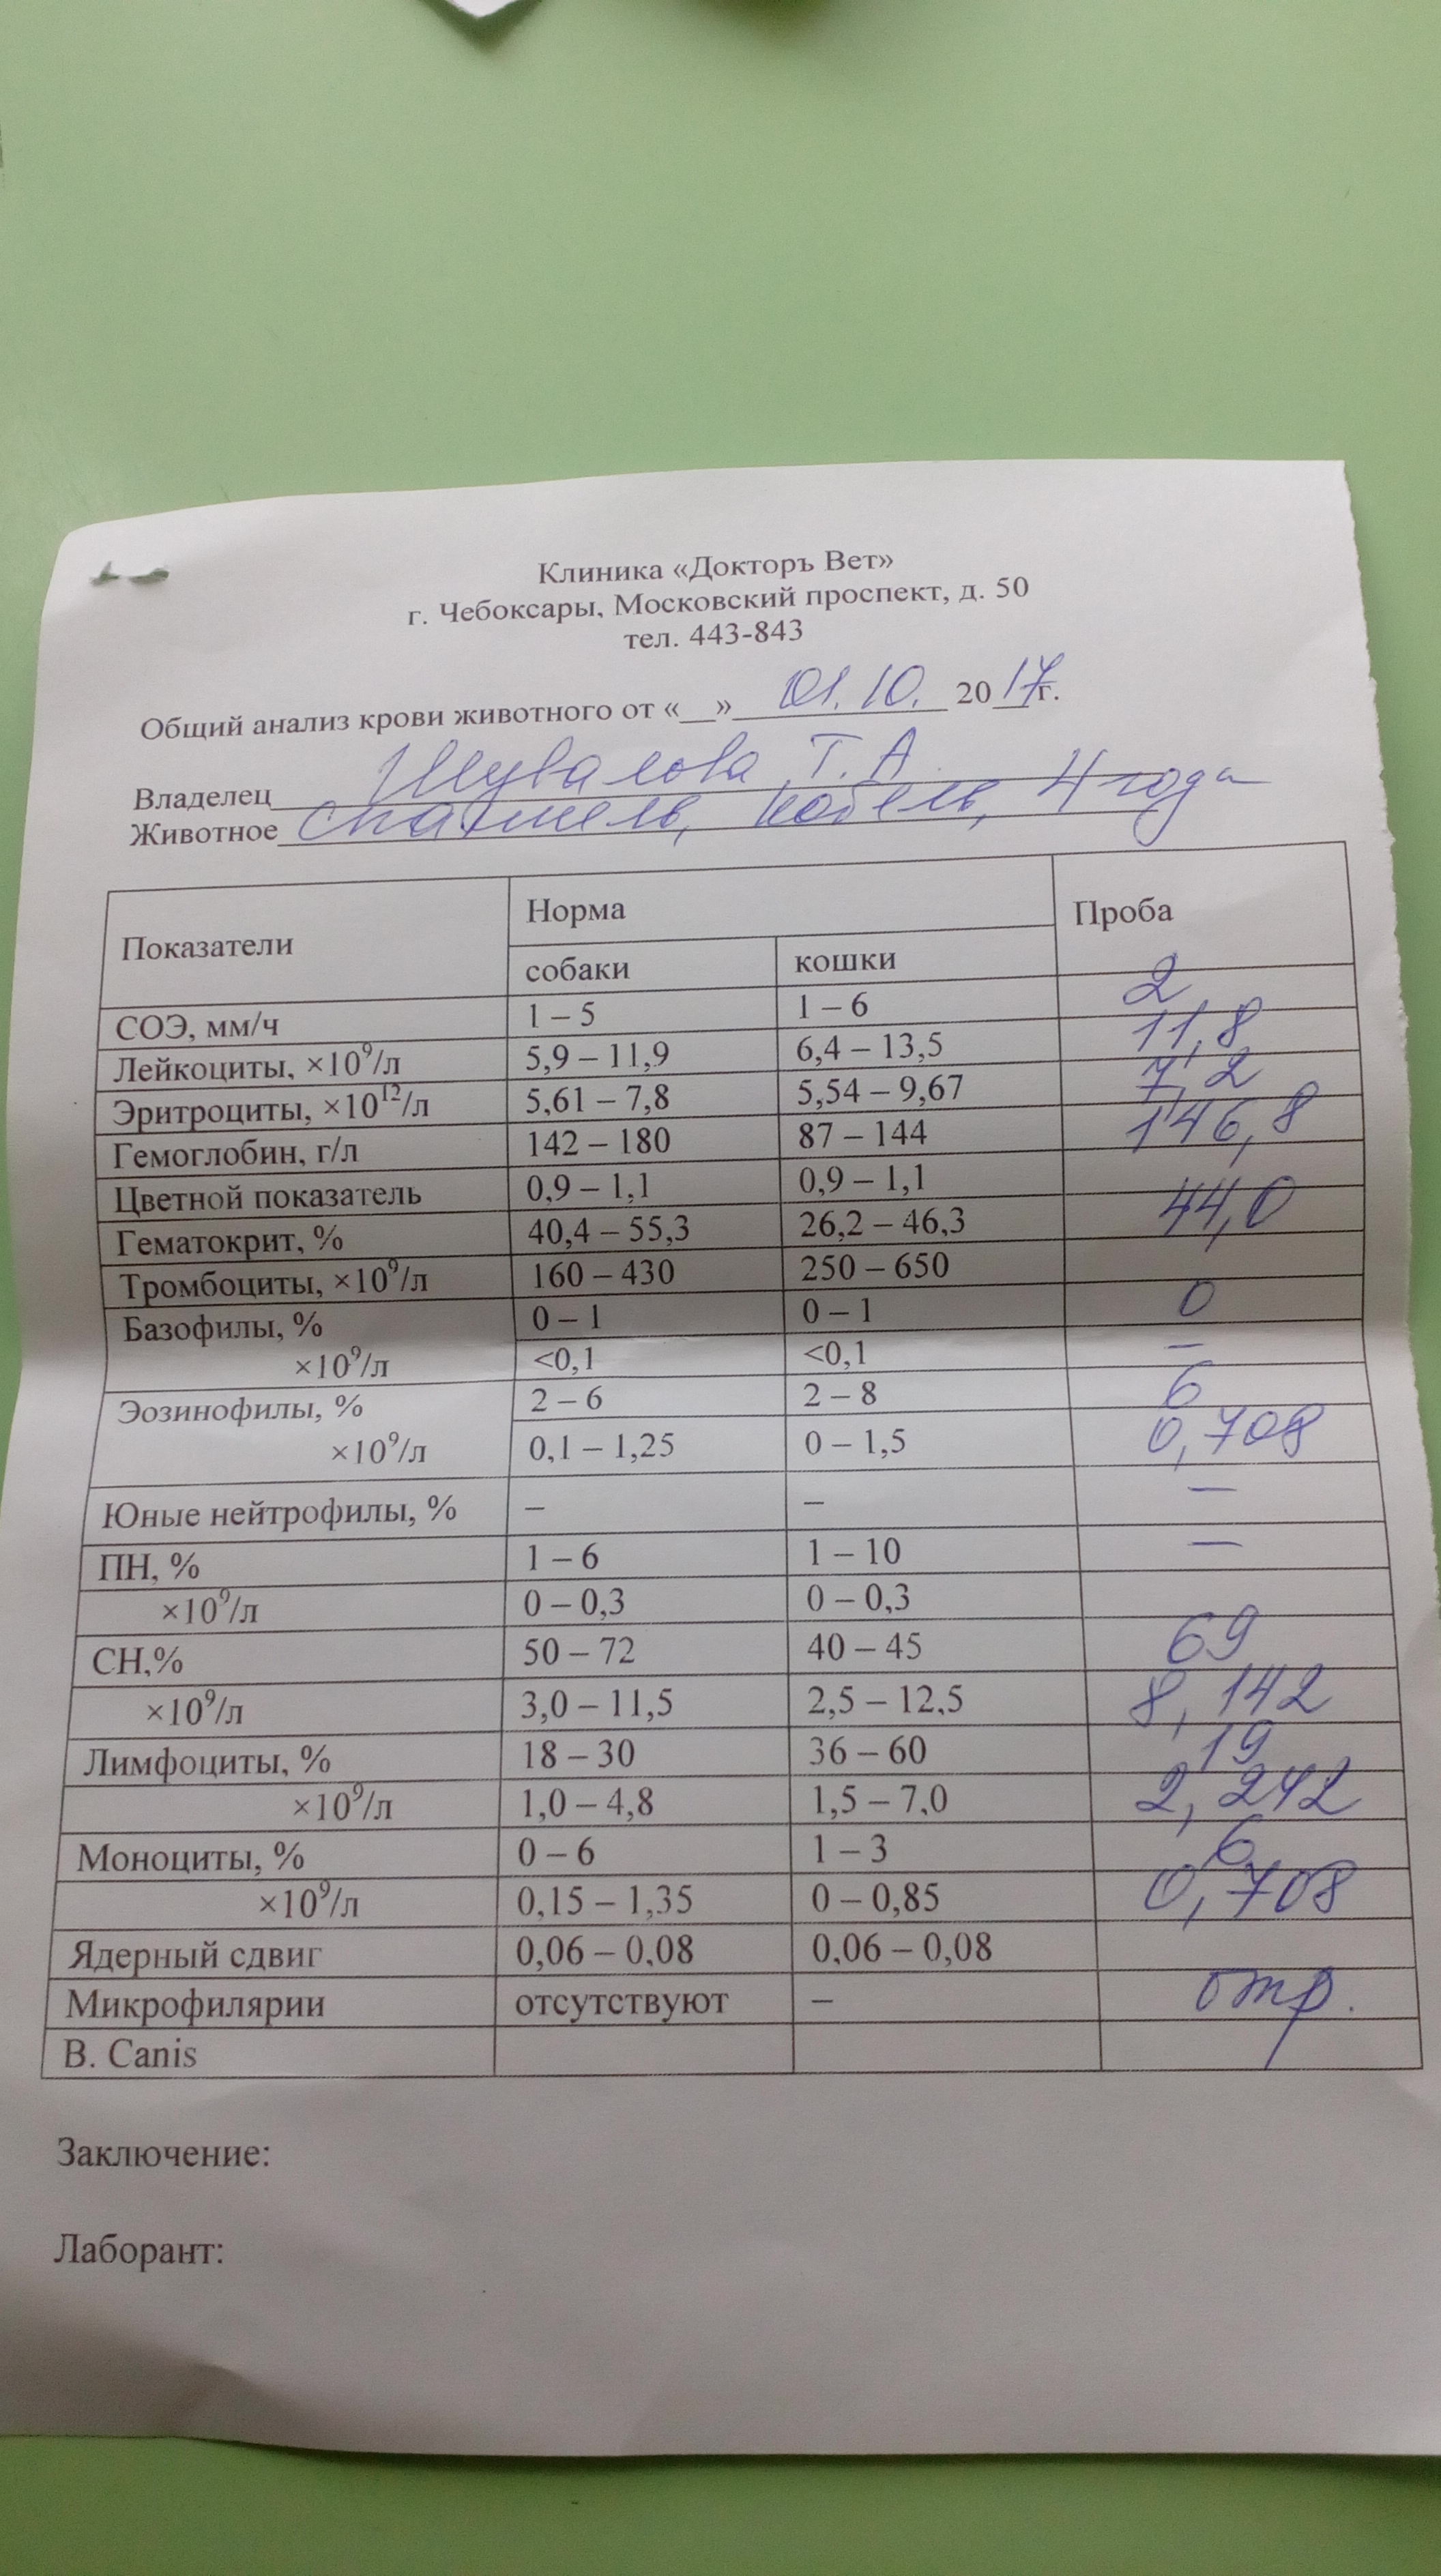 Клиника «Докторъ Вет»
г. Чебоксары, Московский проспект, д. 50
тел. 443-843
Общий анализ крови животного от «__» 01.10. 2017г.
Владелец Шувалова Т. А
Животное спаниель, кобель, 4 года
Показатели Норма Проба
собаки кошки
СОЭ, мм/ч 1 – 5 1 – 6 2
Лейкоциты, ×10⁹/л 5,9 – 11,9 6,4 – 13,5 11,8
Эритроциты, ×10¹²/л 5,61 – 7,8 5,54 – 9,67 7,2
Гемоглобин, г/л 142 – 180 87 – 144 146,8
Цветной показатель 0,9 – 1,1 0,9 – 1,1
Гематокрит, % 40,4 – 55,3 26,2 – 46,3 44,0
Тромбоциты, ×10⁹/л 160 – 430 250 – 650
Базофилы, % 0 – 1 0 – 1 0
×10⁹/л <0,1 <0,1 –
Эозинофилы, % 2 – 6 2 – 8 6
×10⁹/л 0,1 – 1,25 0 – 1,5 0,708
Юные нейтрофилы, % – – –
ПН, % 1 – 6 1 – 10 –
×10⁹/л 0 – 0,3 0 – 0,3
СН,% 50 – 72 40 – 45 69
×10⁹/л 3,0 – 11,5 2,5 – 12,5 8,142
Лимфоциты, % 18 – 30 36 – 60 19
×10⁹/л 1,0 – 4,8 1,5 – 7,0 2,242
Моноциты, % 0 – 6 1 – 3 6
×10⁹/л 0,15 – 1,35 0 – 0,85 0,708
Ядерный сдвиг 0,06 – 0,08 0,06 – 0,08
Микрофилярии отсутствуют – отр.
B. Canis
Заключение:
Лаборант: